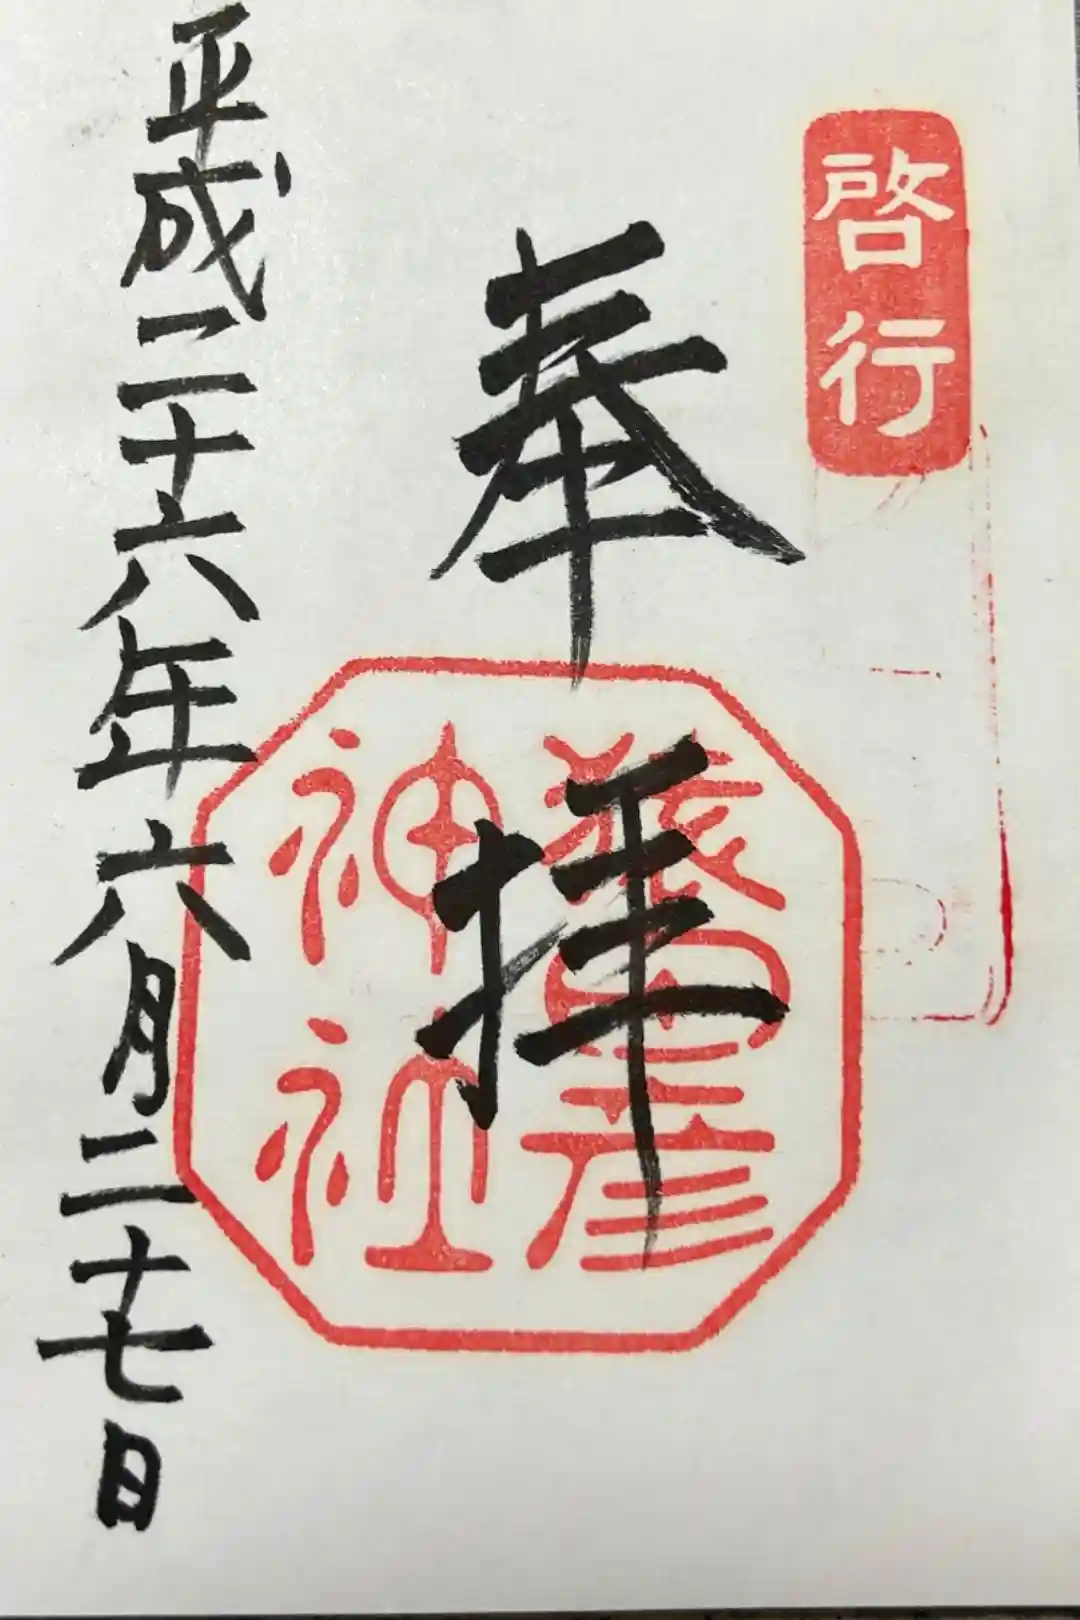 啓行
奉拝
猿田彦
神社
平成二十六年六月二十七日